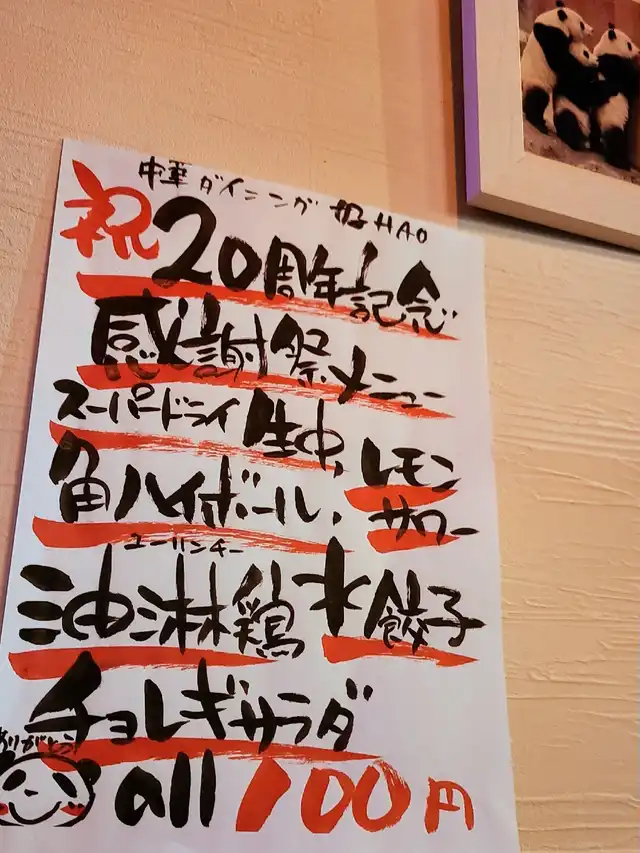 中華ダイニング 好HAO
祝20周年記念
感謝祭メニュー
スーパードライ生中、レモン
角ハイボール、サワー
ユーリンチー
油淋鶏 水餃子
チョレギサラダ
ありがとう!
all 100円